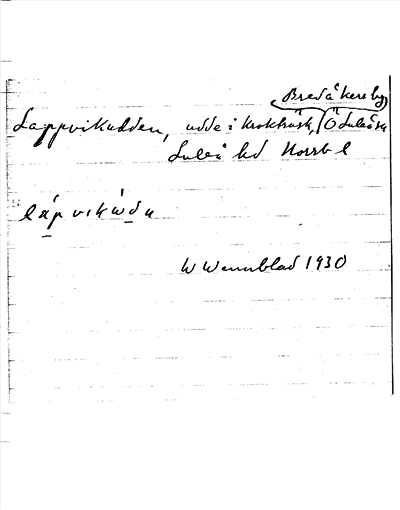 Bredåkers by
Lappvikudden, udde i Krokträsk, Ö Luleå sn
Luleå hd Norrb l
W Wennblad 1930